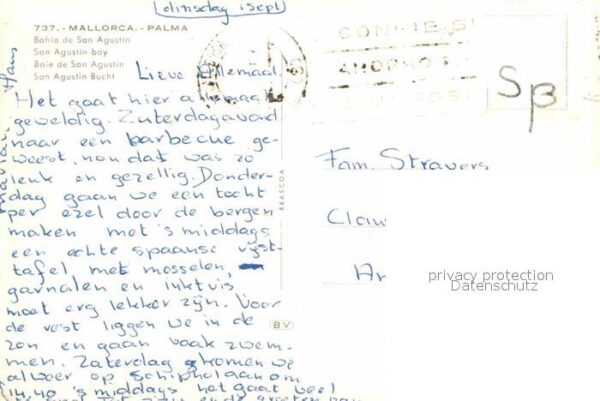 (dinsdag 1 sept)
737.-MALLORCA.-PALMA
Bahia de San Agustin
San Agustin bay
Baie de San Agustin
San Agustin Bucht
Hans
Lieve Allemaal,
Het gaat hier allemaal
geweldig. Zaterdagavond
naar een barbecue ge-
weest, nou dat was zo
leuk en gezellig. Donder-
dag gaan we een tocht
per ezel door de bergen
maken met 's middags
een echte spaanse rijst-
tafel met mosselen,
garnalen en inktvis
moet erg lekker zijn. Voor
de rest liggen we in de
zon en gaan vaak zwem-
men. Zaterdag komen we
alweer op schiphol aan om
14.40 's middags het gaat veel
en de groeten van
BRASCOA
BV
Sp
Fam. Stravers
Clau
Ar
privacy protection
Datenschutz